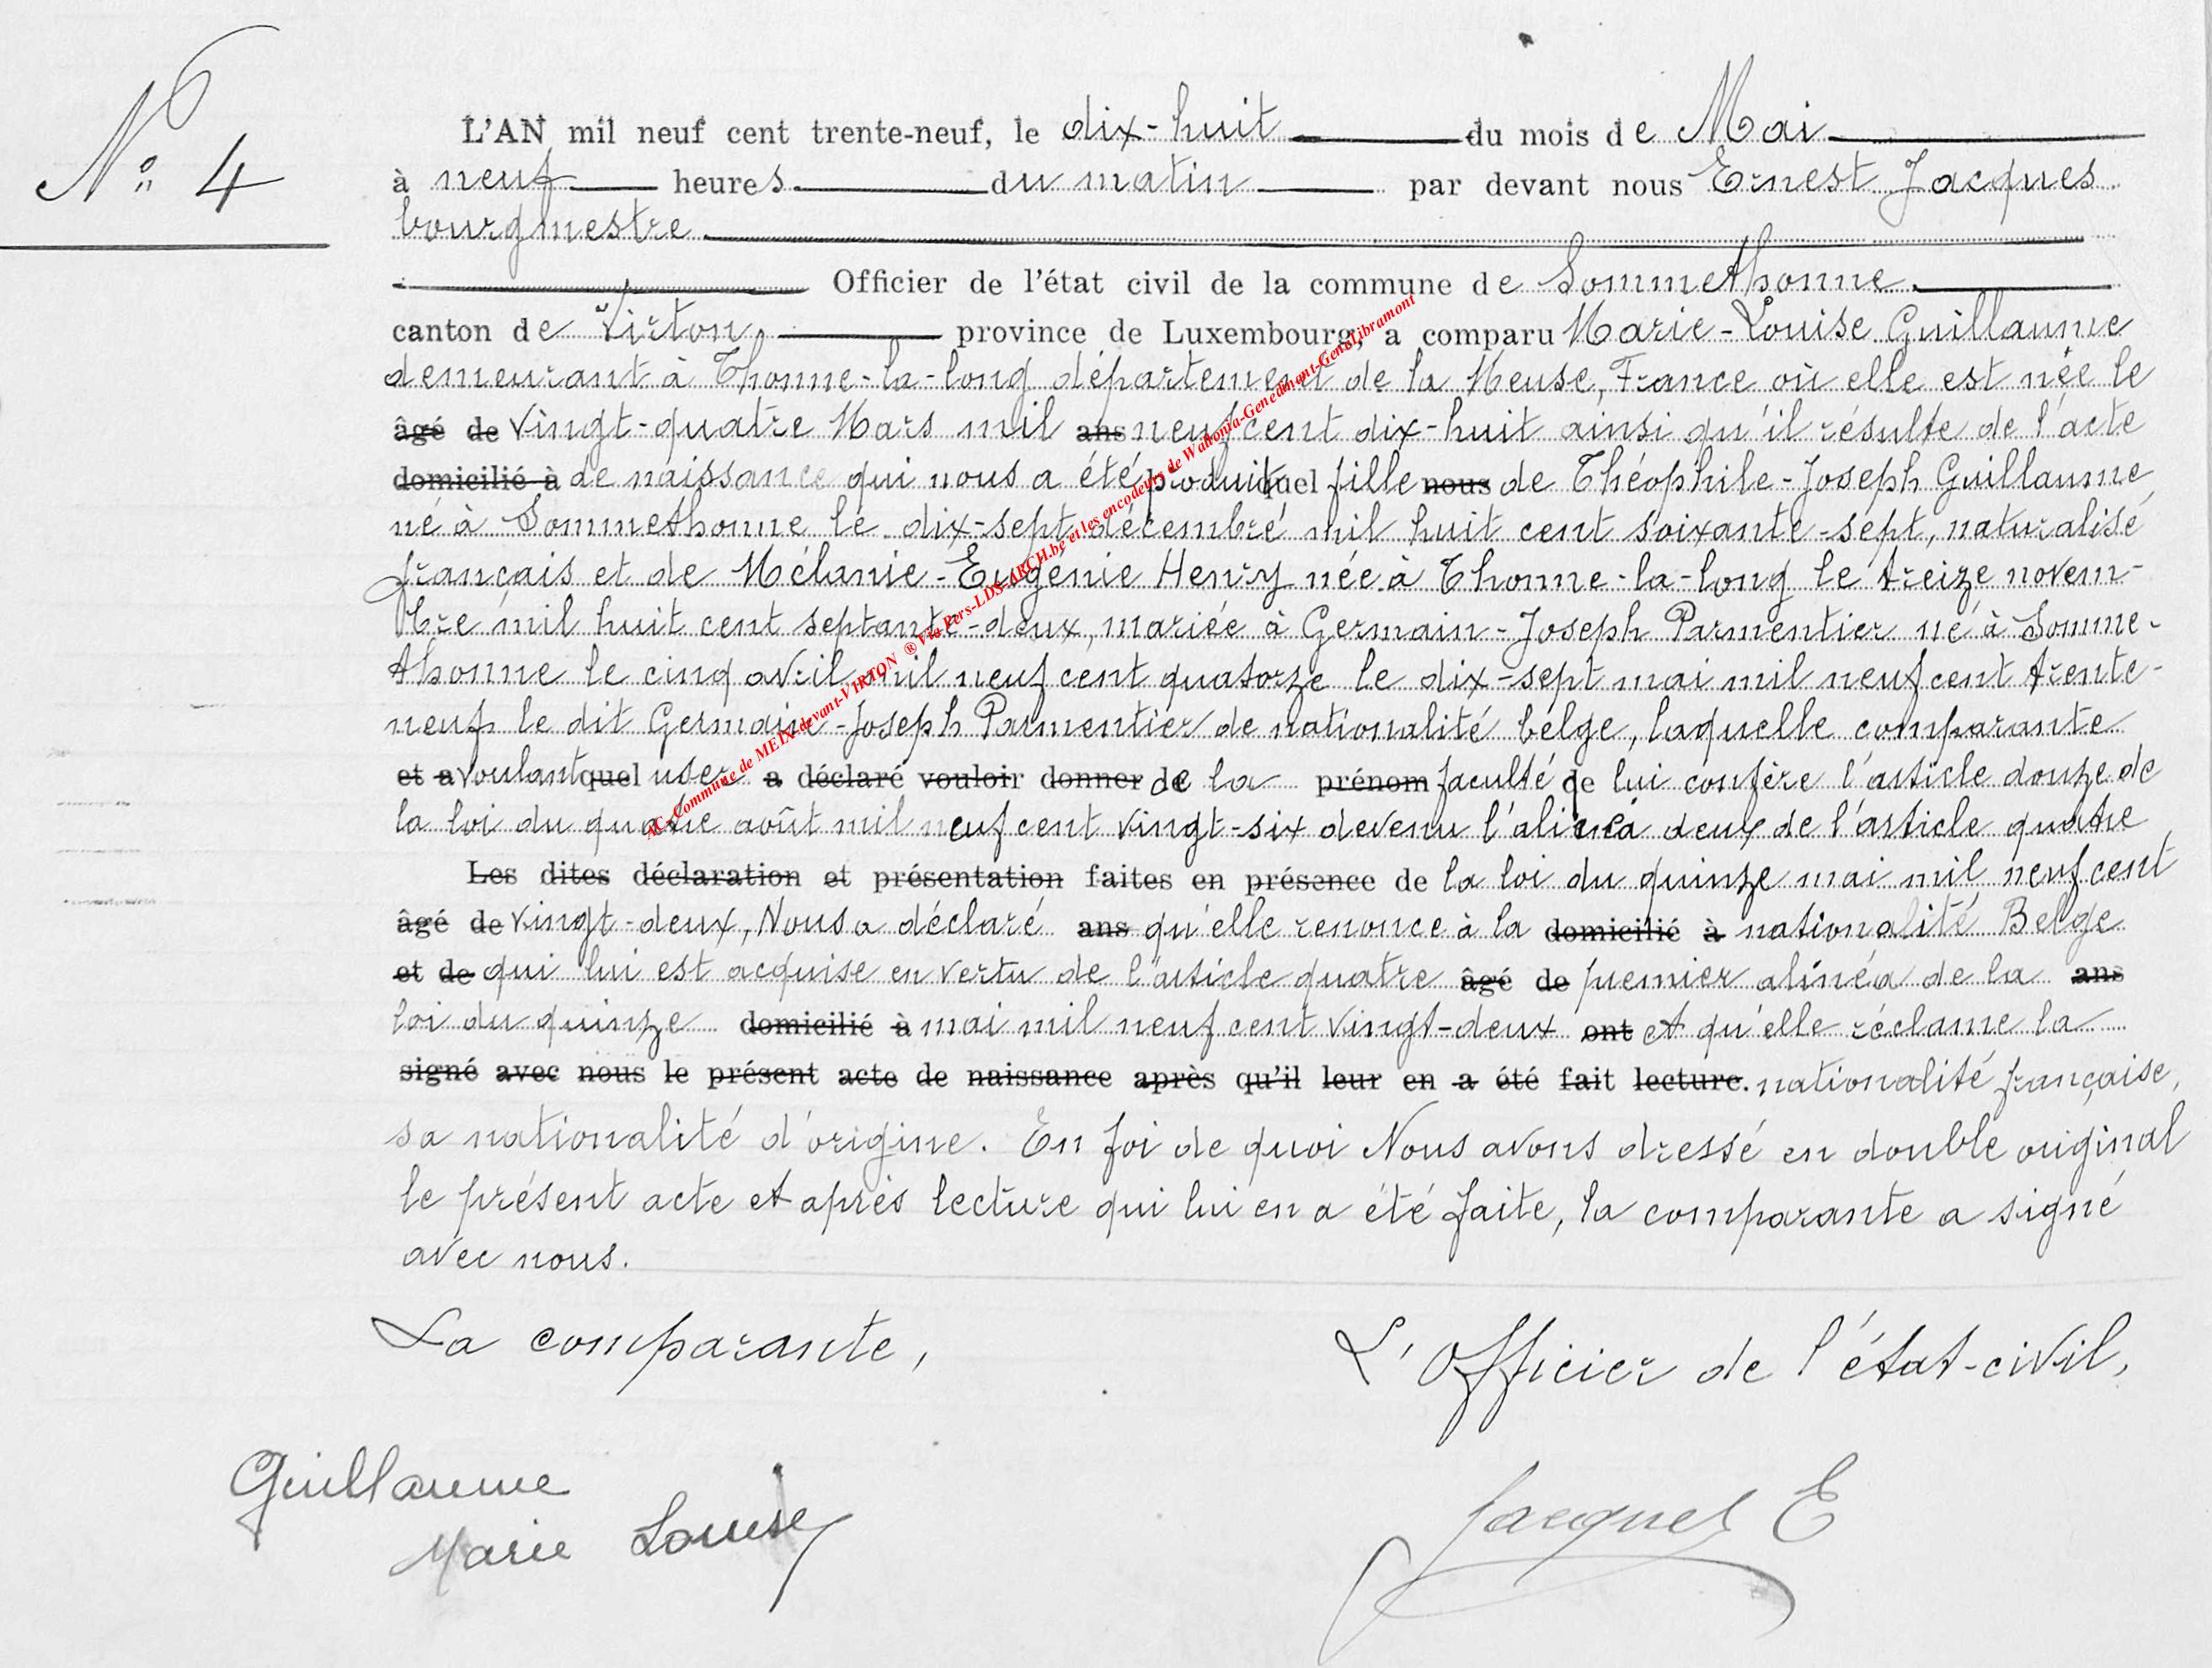 N° 4
L'AN mil neuf cent trente-neuf, le dix-huit du mois de Mai
à neuf heures du matin par devant nous Ernest Jacques
bourgmestre
Officier de l'état civil de la commune de Sommethonne
canton de Virton, province de Luxembourg, a comparu Marie-Louise Guillaume
demeurant à Thonne-la-long département de la Meuse, France où elle est née le
âgé de vingt-quatre Mars mil ans neuf cent dix-huit ainsi qu'il résulte de l'acte
domicilié à de naissance qui nous a été produit quel fille nous de Théophile-Joseph Guillaume
né à Sommethonne le dix-sept décembre mil huit cent soixante-sept, naturalisé
français et de Mélanie-Eugénie Henry née à Thonne-la-long le treize novem-
bre mil huit cent septante-deux, mariée à Germain-Joseph Parmentier né à Somme-
thonne le cinq avril mil neuf cent quatorze le dix-sept mai mil neuf cent trente-
neuf le dit Germain-Joseph Parmentier de nationalité belge, laquelle comparante
et a voulant quel user a déclaré vouloir donner de la prénom faculté de lui confère l'article douze de
la loi du quatre août mil neuf cent vingt-six devenu l'alinéa deux de l'article quatre
Les dites déclaration et présentation faites en présence de la loi du quinze mai mil neuf cent
âgé de vingt-deux, Nous a déclaré ans qu'elle renonce à la domicilié à nationalité Belge
et de qui lui est acquise en vertu de l'article quatre âgé de premier alinéa de la ans
loi du quinze domicilié à mai mil neuf cent vingt-deux ont et qu'elle réclame la
signé avec nous le présent acte de naissance après qu'il leur en a été fait lecture. nationalité française,
sa nationalité d'origine. En foi de quoi Nous avons dressé en double original
le présent acte et après lecture qui lui en a été faite, la comparante a signé
avec nous.
La comparante,
L'Officier de l'état-civil,
Guillaume
Marie Louise
Jacques E
AC-Commune de MEIX-devant-VIRTON ® Via Pers-LDS-ARCH.be et les encodeurs de Wallonia-Genedinant-GenoLibramont